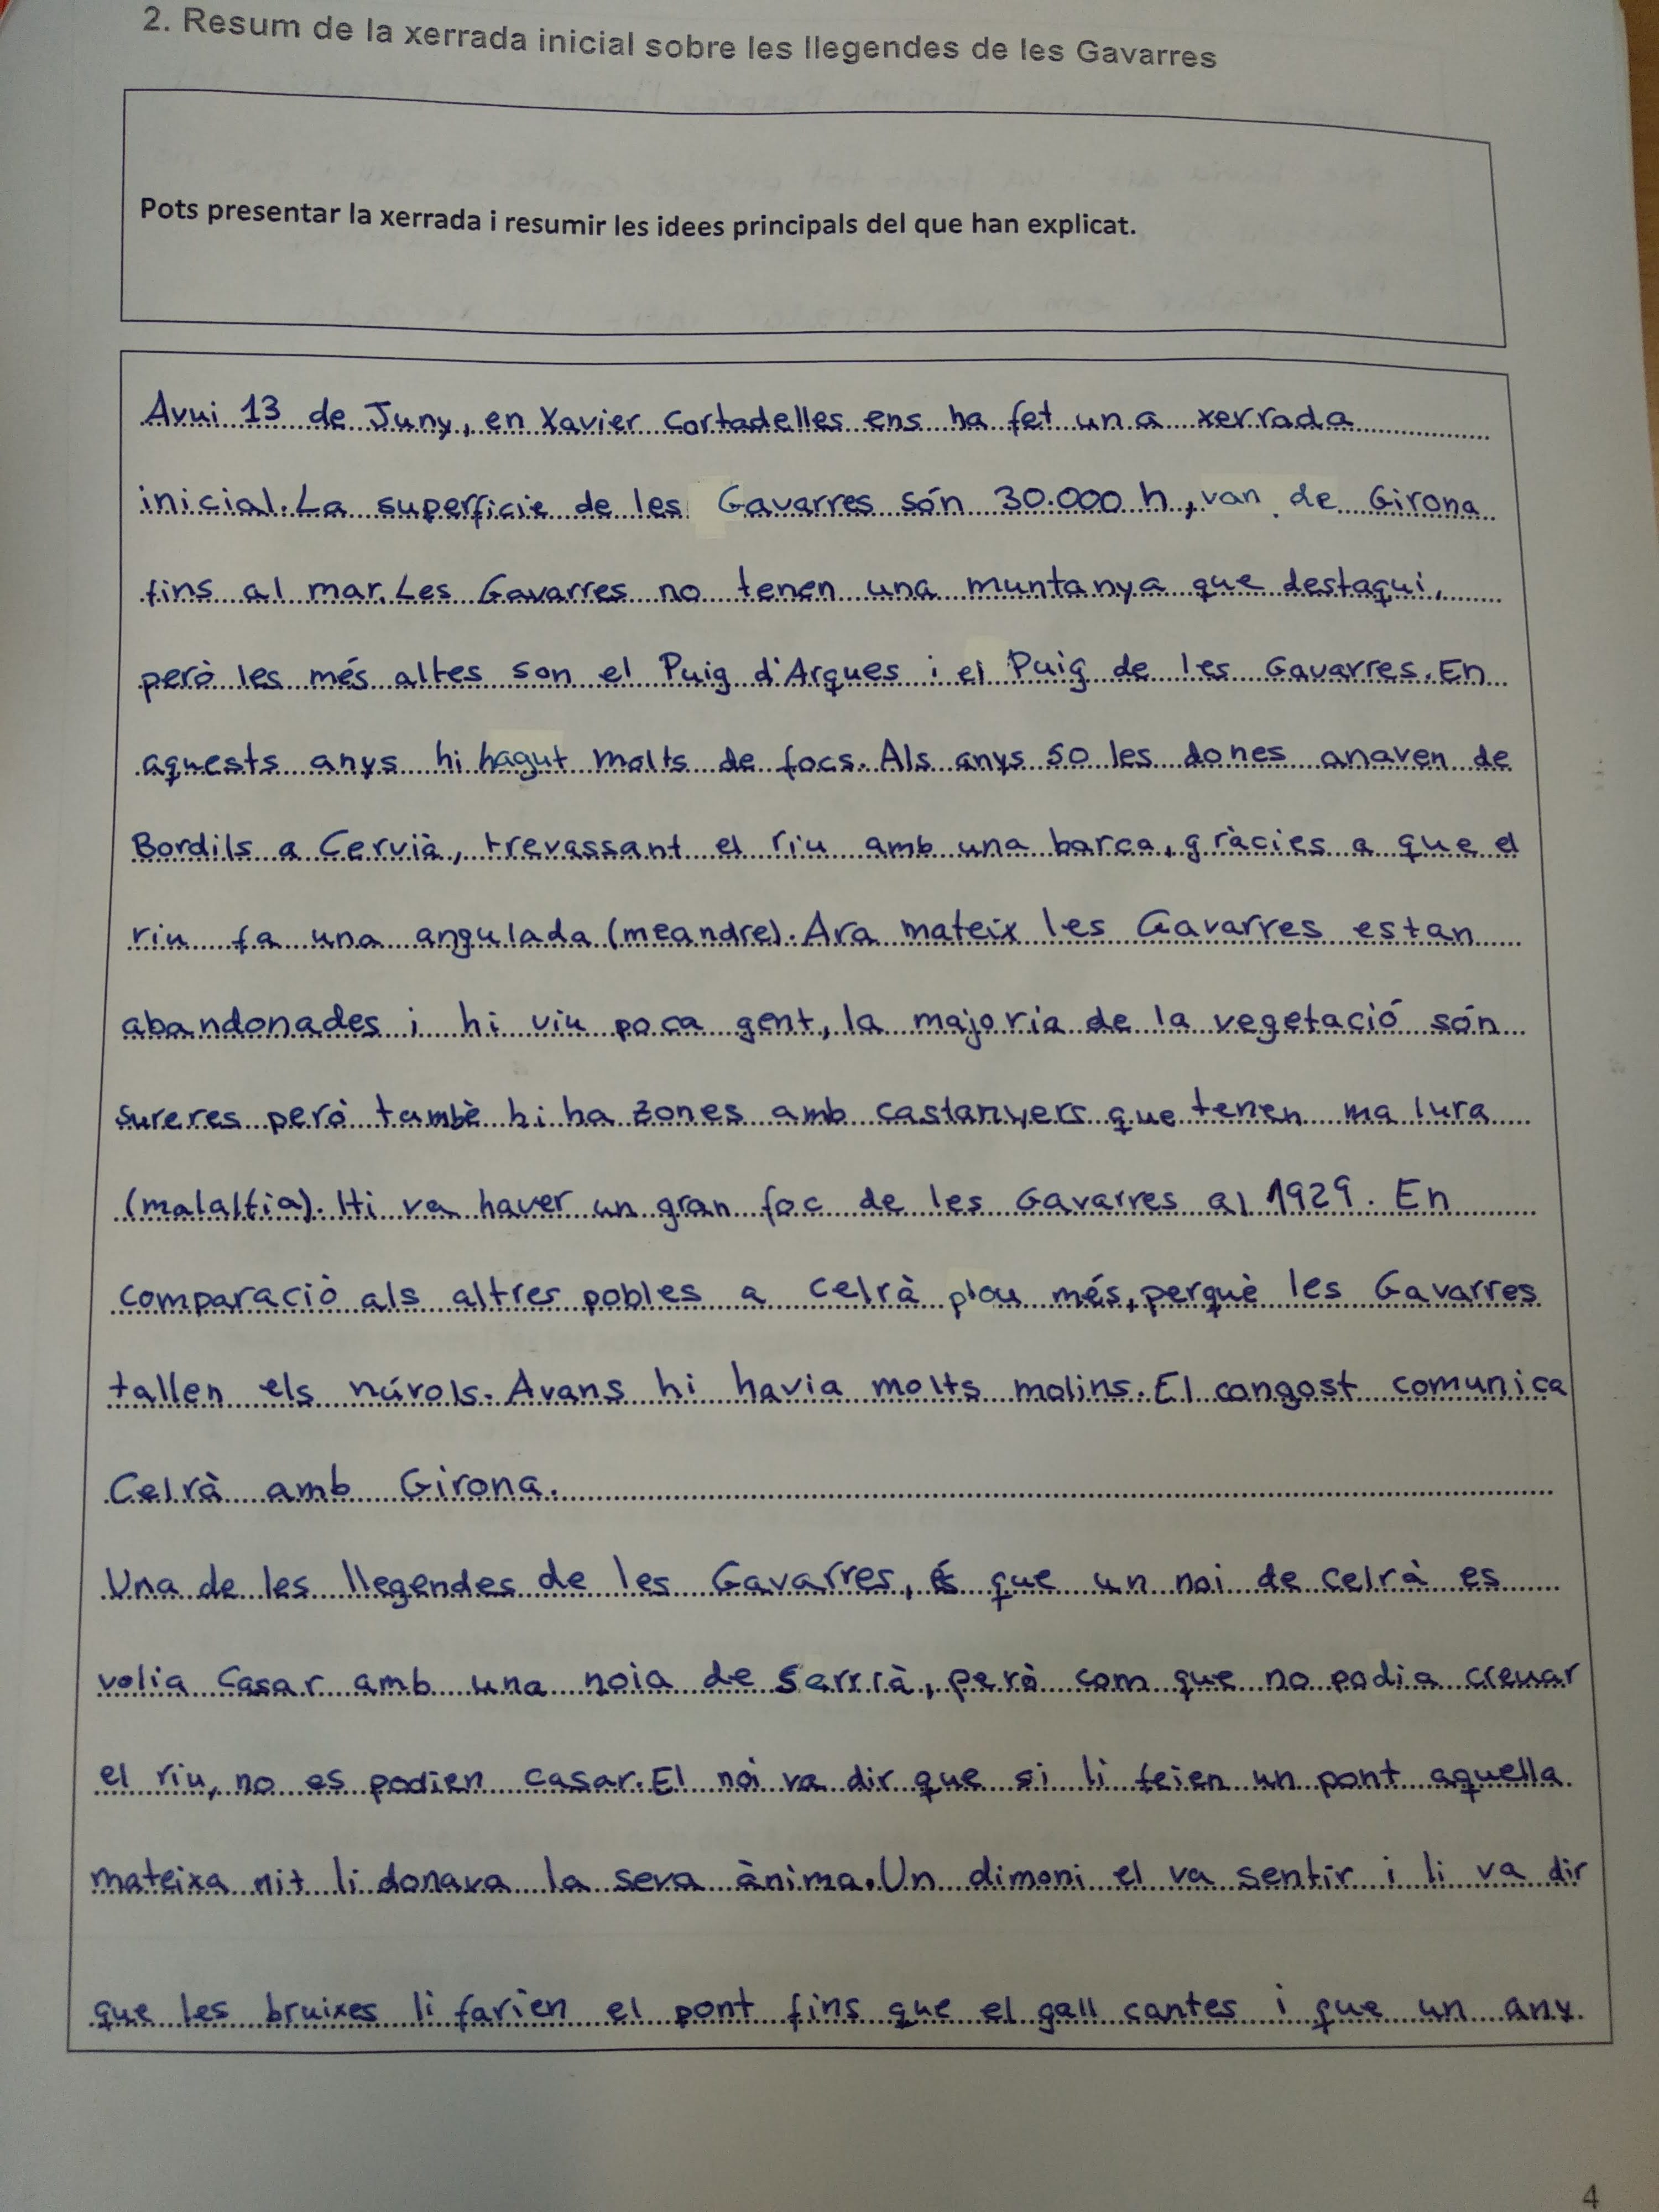 2. Resum de la xerrada inicial sobre les llegendes de les Gavarres
Pots presentar la xerrada i resumir les idees principals del que han explicat.
Avui 13 de Juny, en Xavier Cortadelles ens ha fet una xerrada
inicial. La superfície de les Gavarres són 30.000 h, van de Girona
fins al mar. Les Gavarres no tenen una muntanya que destaqui,
però les més altes son el Puig d'Arques i el Puig de les Gavarres. En
aquests anys hi hagut molts de focs. Als anys 50 les dones anaven de
Bordils a Cervià, trevassant el riu amb una barca, gràcies a que el
riu fa una angulada (meandre). Ara mateix les Gavarres estan
abandonades i hi viu poca gent, la majoria de la vegetació són
sureres però tambè hi ha zones amb castanyers que tenen malura
(malaltia). Hi va haver un gran foc de les Gavarres al 1929. En
comparació als altres pobles a celrà plou més, perquè les Gavarres
tallen els núvols. Avans hi havia molts molins. El congost comunica
Celrà amb Girona.
Una de les llegendes de les Gavarres, és que un noi de celrà es
volia casar amb una noia de Sarrià, però com que no podia creuar
el riu, no es podien casar. El noi va dir que si li feien un pont aquella
mateixa nit li donava la seva ànima. Un dimoni el va sentir i li va dir
que les bruixes li farien el pont fins que el gall cantes i que un any
4